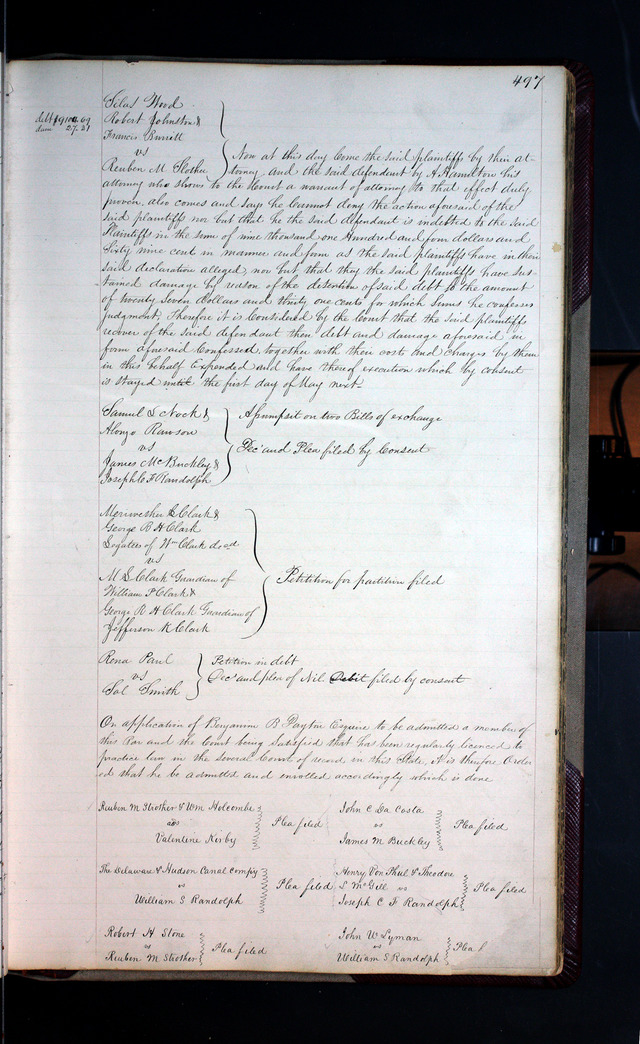 497
Silas Wood
debt 9104.69 Robert Johnston &
dam 27.31 Francis Burritt
vs
Reuben M. Strother
Now at this day Come the said plaintiffs by their at-
torney and the said defendant by A Hamilton his
attorney who shows to the Court a warrant of attorney to that effect duly
proven, also comes and says he Cannot deny the action aforesaid of the
said plaintiffs nor but that he the said defendant is indebted to the said
Plaintiffs in the sum of nine thousand one Hundred and four dollars and
Sixty nine cent in manner and form as the said plaintiffs have in their
said declaration alleged, nor but that they the said plaintiffs have sus-
tained damage by reason of the detention of said debt to the amount
of twenty seven dollars and thirty one cents for which sums he confesses
judgment, Therefore it is Considered by the Court that the said plaintiffs
recover of the said defendant their debt and damage aforesaid in
form aforesaid Confessed, together with their costs And charges by them
in this behalf Expended and have thereof execution which by consent
is stayed until the first day of May next
Samuel L Nock & Assumpsit on two Bills of exchange
Alonzo Rawson
vs Decn and Plea filed by Consent
James McBuckley &
Joseph C F Randolph
Meriwether L Clark &
George R H Clark
Legatees of Wm Clark decd
vs
M L Clark Guardian of Petition for partition filed
William P Clark &
George R H Clark Guardian of
Jefferson K Clark
Rena Paul Petition in debt
vs Decn and plea of Nil Debit filed by consent
Sol Smith
On application of Benjamin B Dayton Esquire to be admitted a member of
this Bar and the Court being Satisfied that has been regularly licenced to
practice law in the several Courts of record in this State, It is therefore Order
ed that he be admitted and enrolled accordingly which is done
Reuben M Strother & Wm Holcombe
vs Plea filed
Valentine Kirby
John C Da Costa
vs Plea filed
James M Buckley
The Delaware & Hudson Canal Compy
vs Plea filed
William S Randolph
Henry Von Phul & Theodore
L McGill vs Plea filed
Joseph C F Randolph
Robert H Stone
vs Plea filed
Reuben M Strother
John W Lyman
vs Plea f
William S Randolph